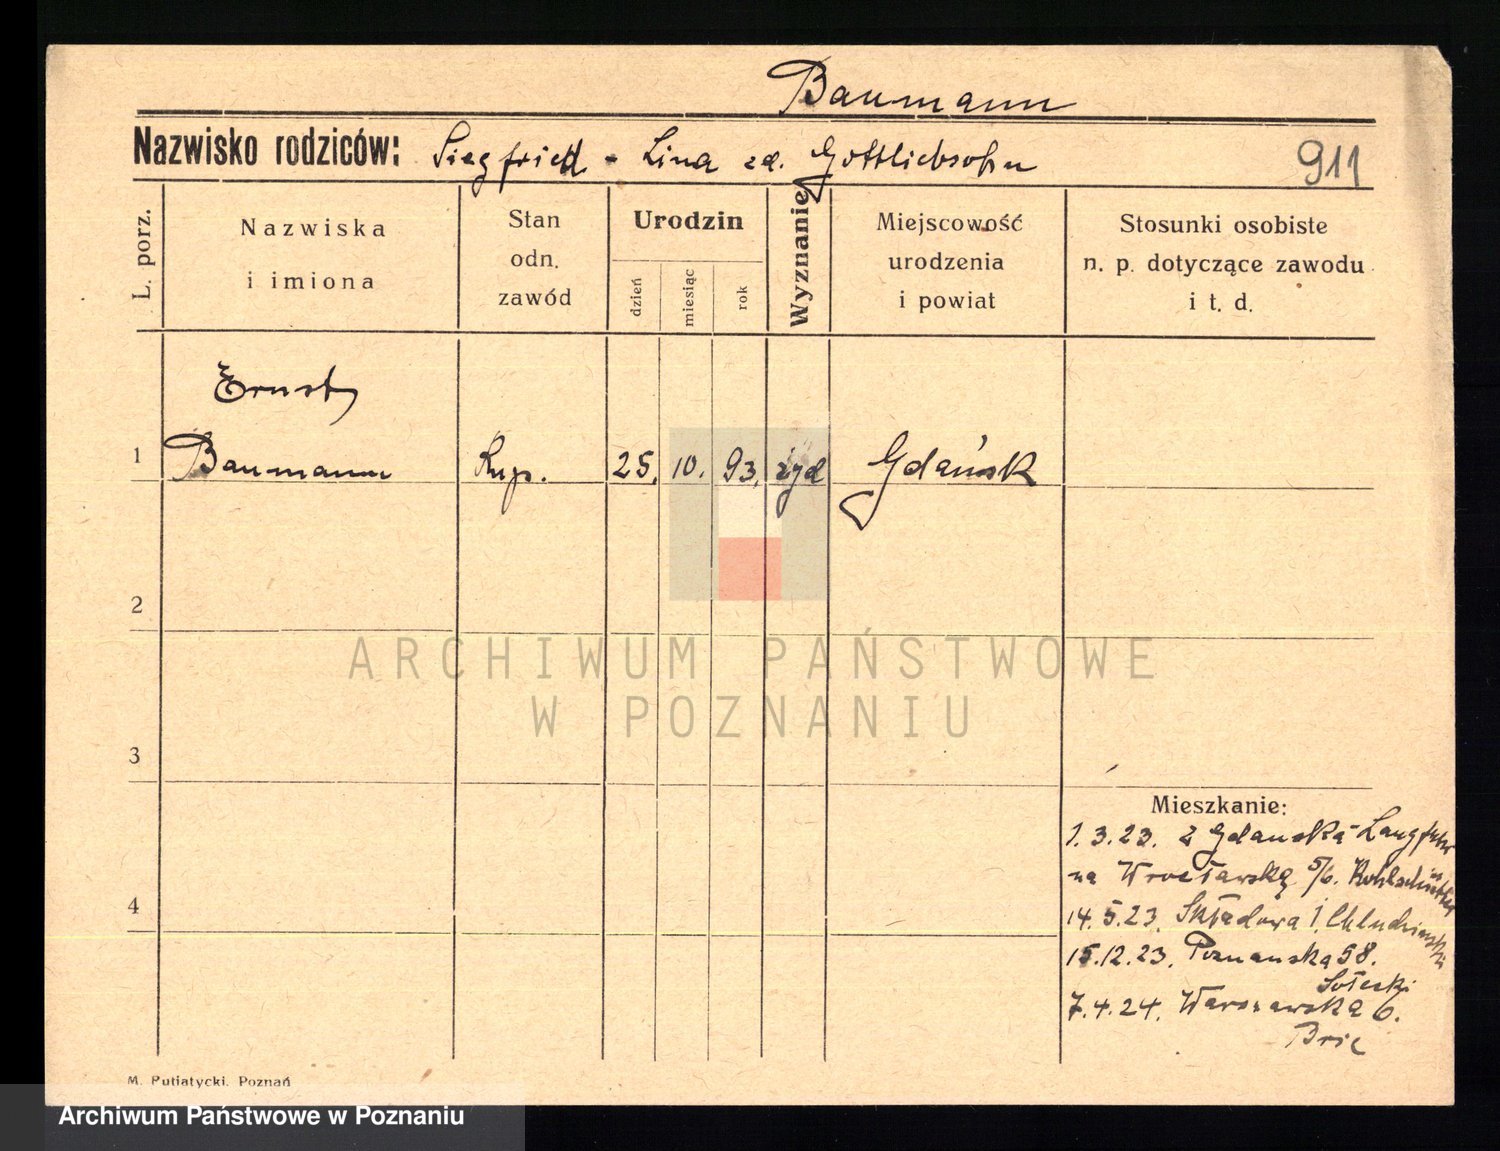 Baumann
Nazwisko rodziców: Siegfried - Lina zd. Gottliebsohn 911
L. porz.
Nazwiska i imiona
Stan odn. zawód
Urodzin
dzień miesiąc rok
Wyznanie
Miejscowość urodzenia i powiat
Stosunki osobiste n. p. dotyczące zawodu i t. d.
Ernst
1 Baumann Kup. 25. 10. 93. żyd Gdańsk
2
ARCHIWUM PAŃSTWOWE
W POZNANIU
3
Mieszkanie:
1.3.23. z Gdańska-Langfuhr
na Wrocławską 5/6.
4
14.5.23. Składowa 1.
15.12.23. Poznańska 58.
7.4.24. Warszawska 6.
M. Putiatycki. Poznań
Archiwum Państwowe w Poznaniu